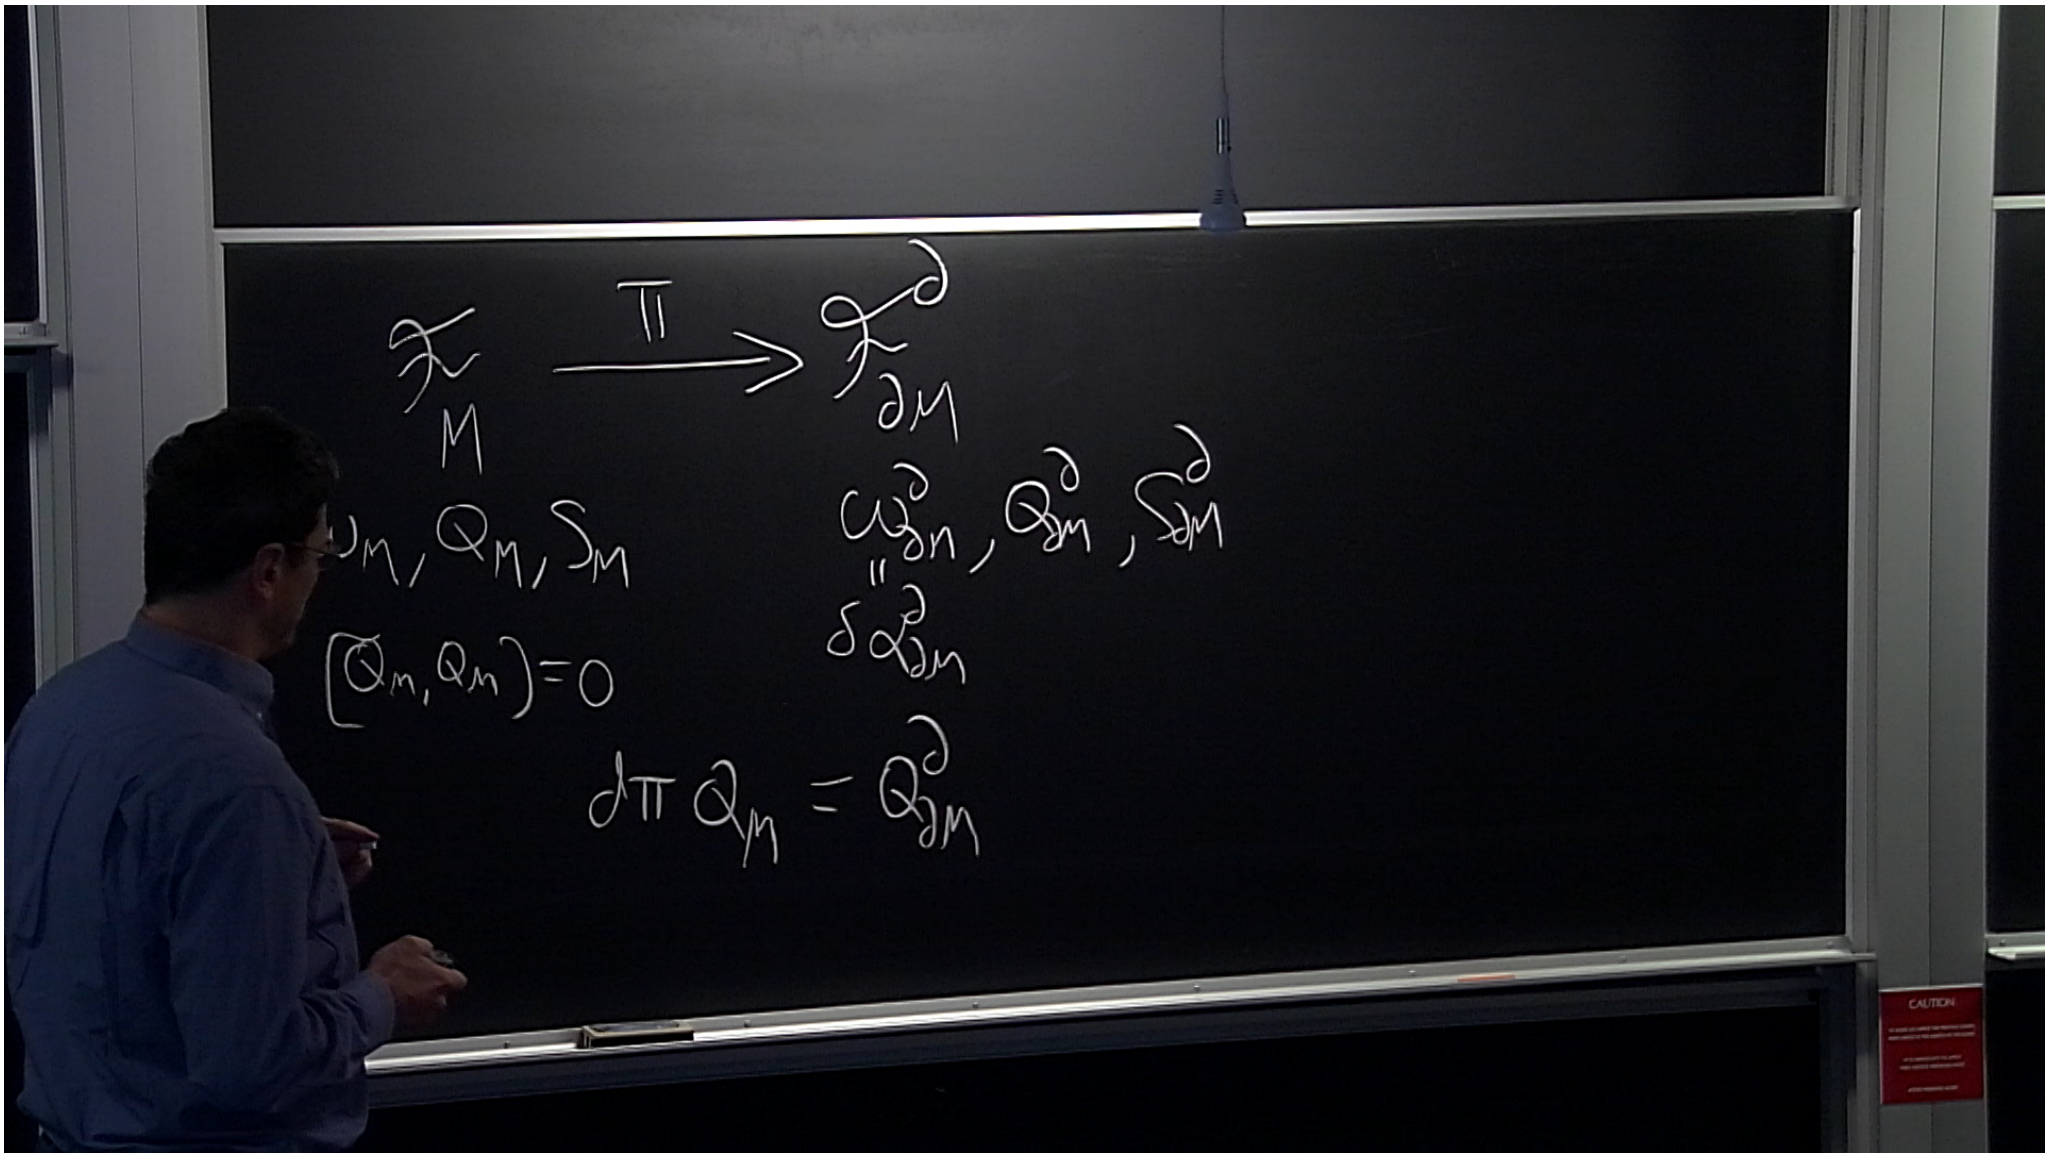 ℱ_M —π→ ℱ^∂_{∂M}
ω_M, Q_M, S_M ω^∂_{∂M}, Q^∂_{∂M}, S^∂_{∂M}
"
δα^∂_{∂M}
[Q_M, Q_M] = 0
dπ Q_M = Q^∂_{∂M}
CAUTION